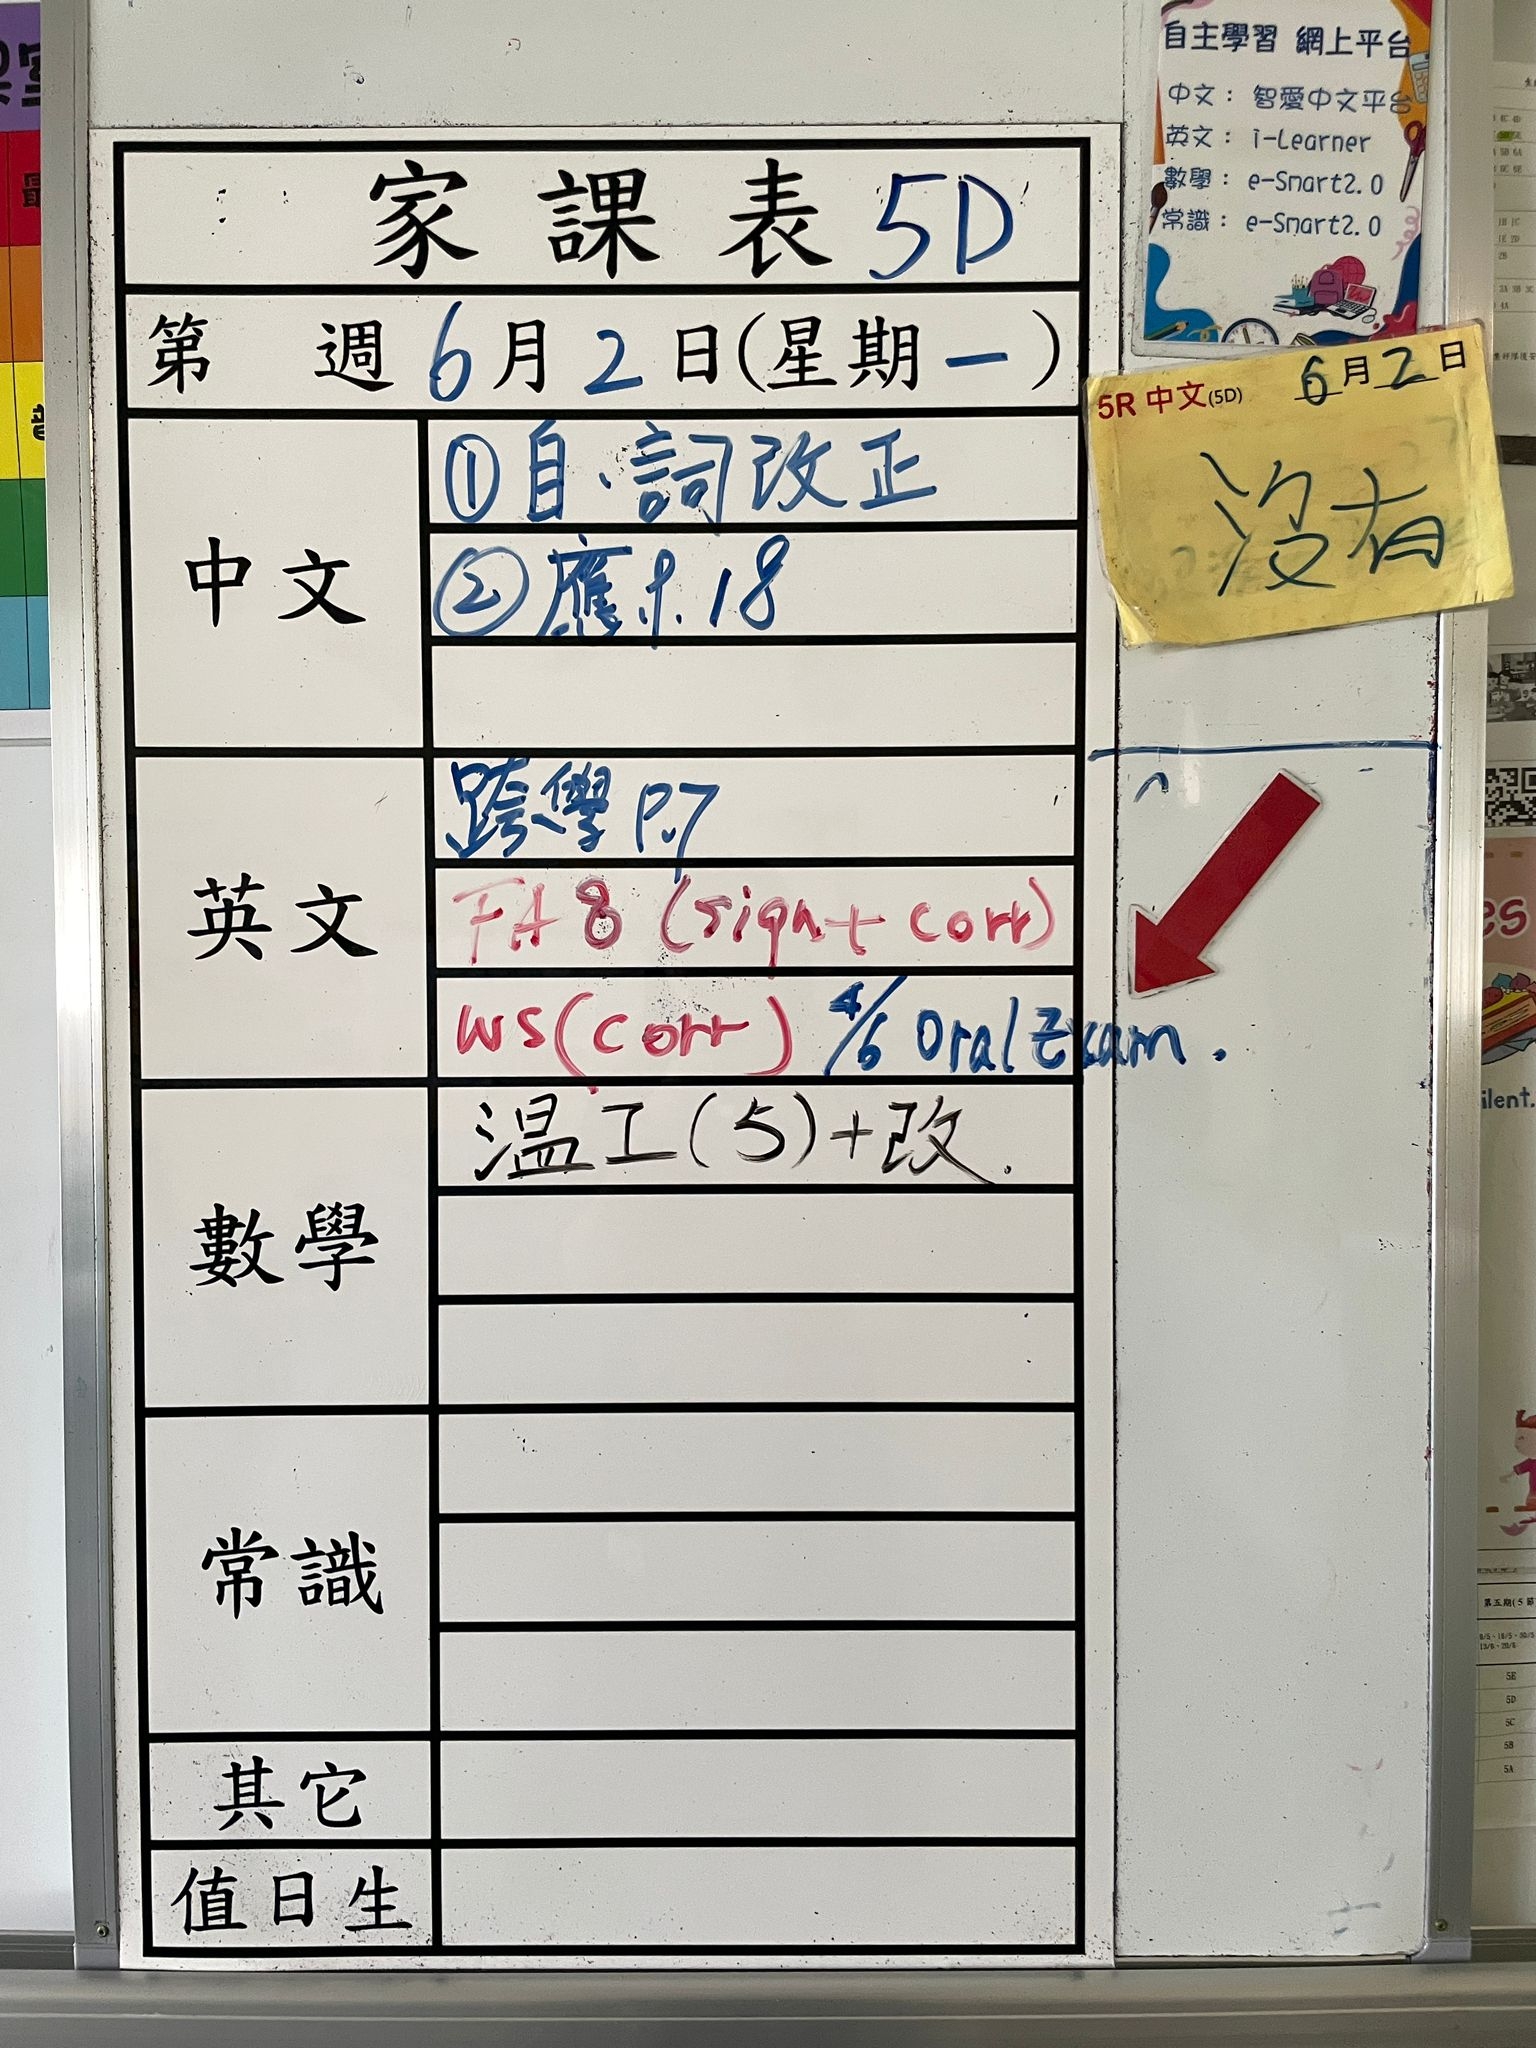 自主學習 網上平台
中文： 智愛中文平台
英文： i-Learner
數學： e-Smart2.0
常識： e-Smart2.0
家課表 5D
第 週 6月2日(星期一)
5R 中文(5D) 6月2日
沒有
中文
①自.詞改正
②應 18
英文
跨學 P.7
FA8 (sign + corr)
WS(corr) 4/6 Oral Exam.
數學
溫工(5)+改.
常識
其它
值日生
ilent.
第五期(5節
5E
5D
5C
5B
5A